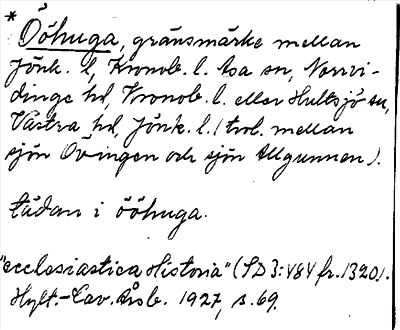 * Ööhuga, gränsmärke mellan
Jönk. l, Kronob. l. Asa sn, Norrvi-
dinge hd, Kronob. l. eller Hultsjö sn,
Västra hd, Jönk. l. (trol. mellan
sjön Övingen och sjön Allgunnen).
tädan i ööhuga.
"ecclesiastica Historia" (SD 3:484 fr. 1320).
Hylt.-Cav. Årsb. 1927, s. 69.